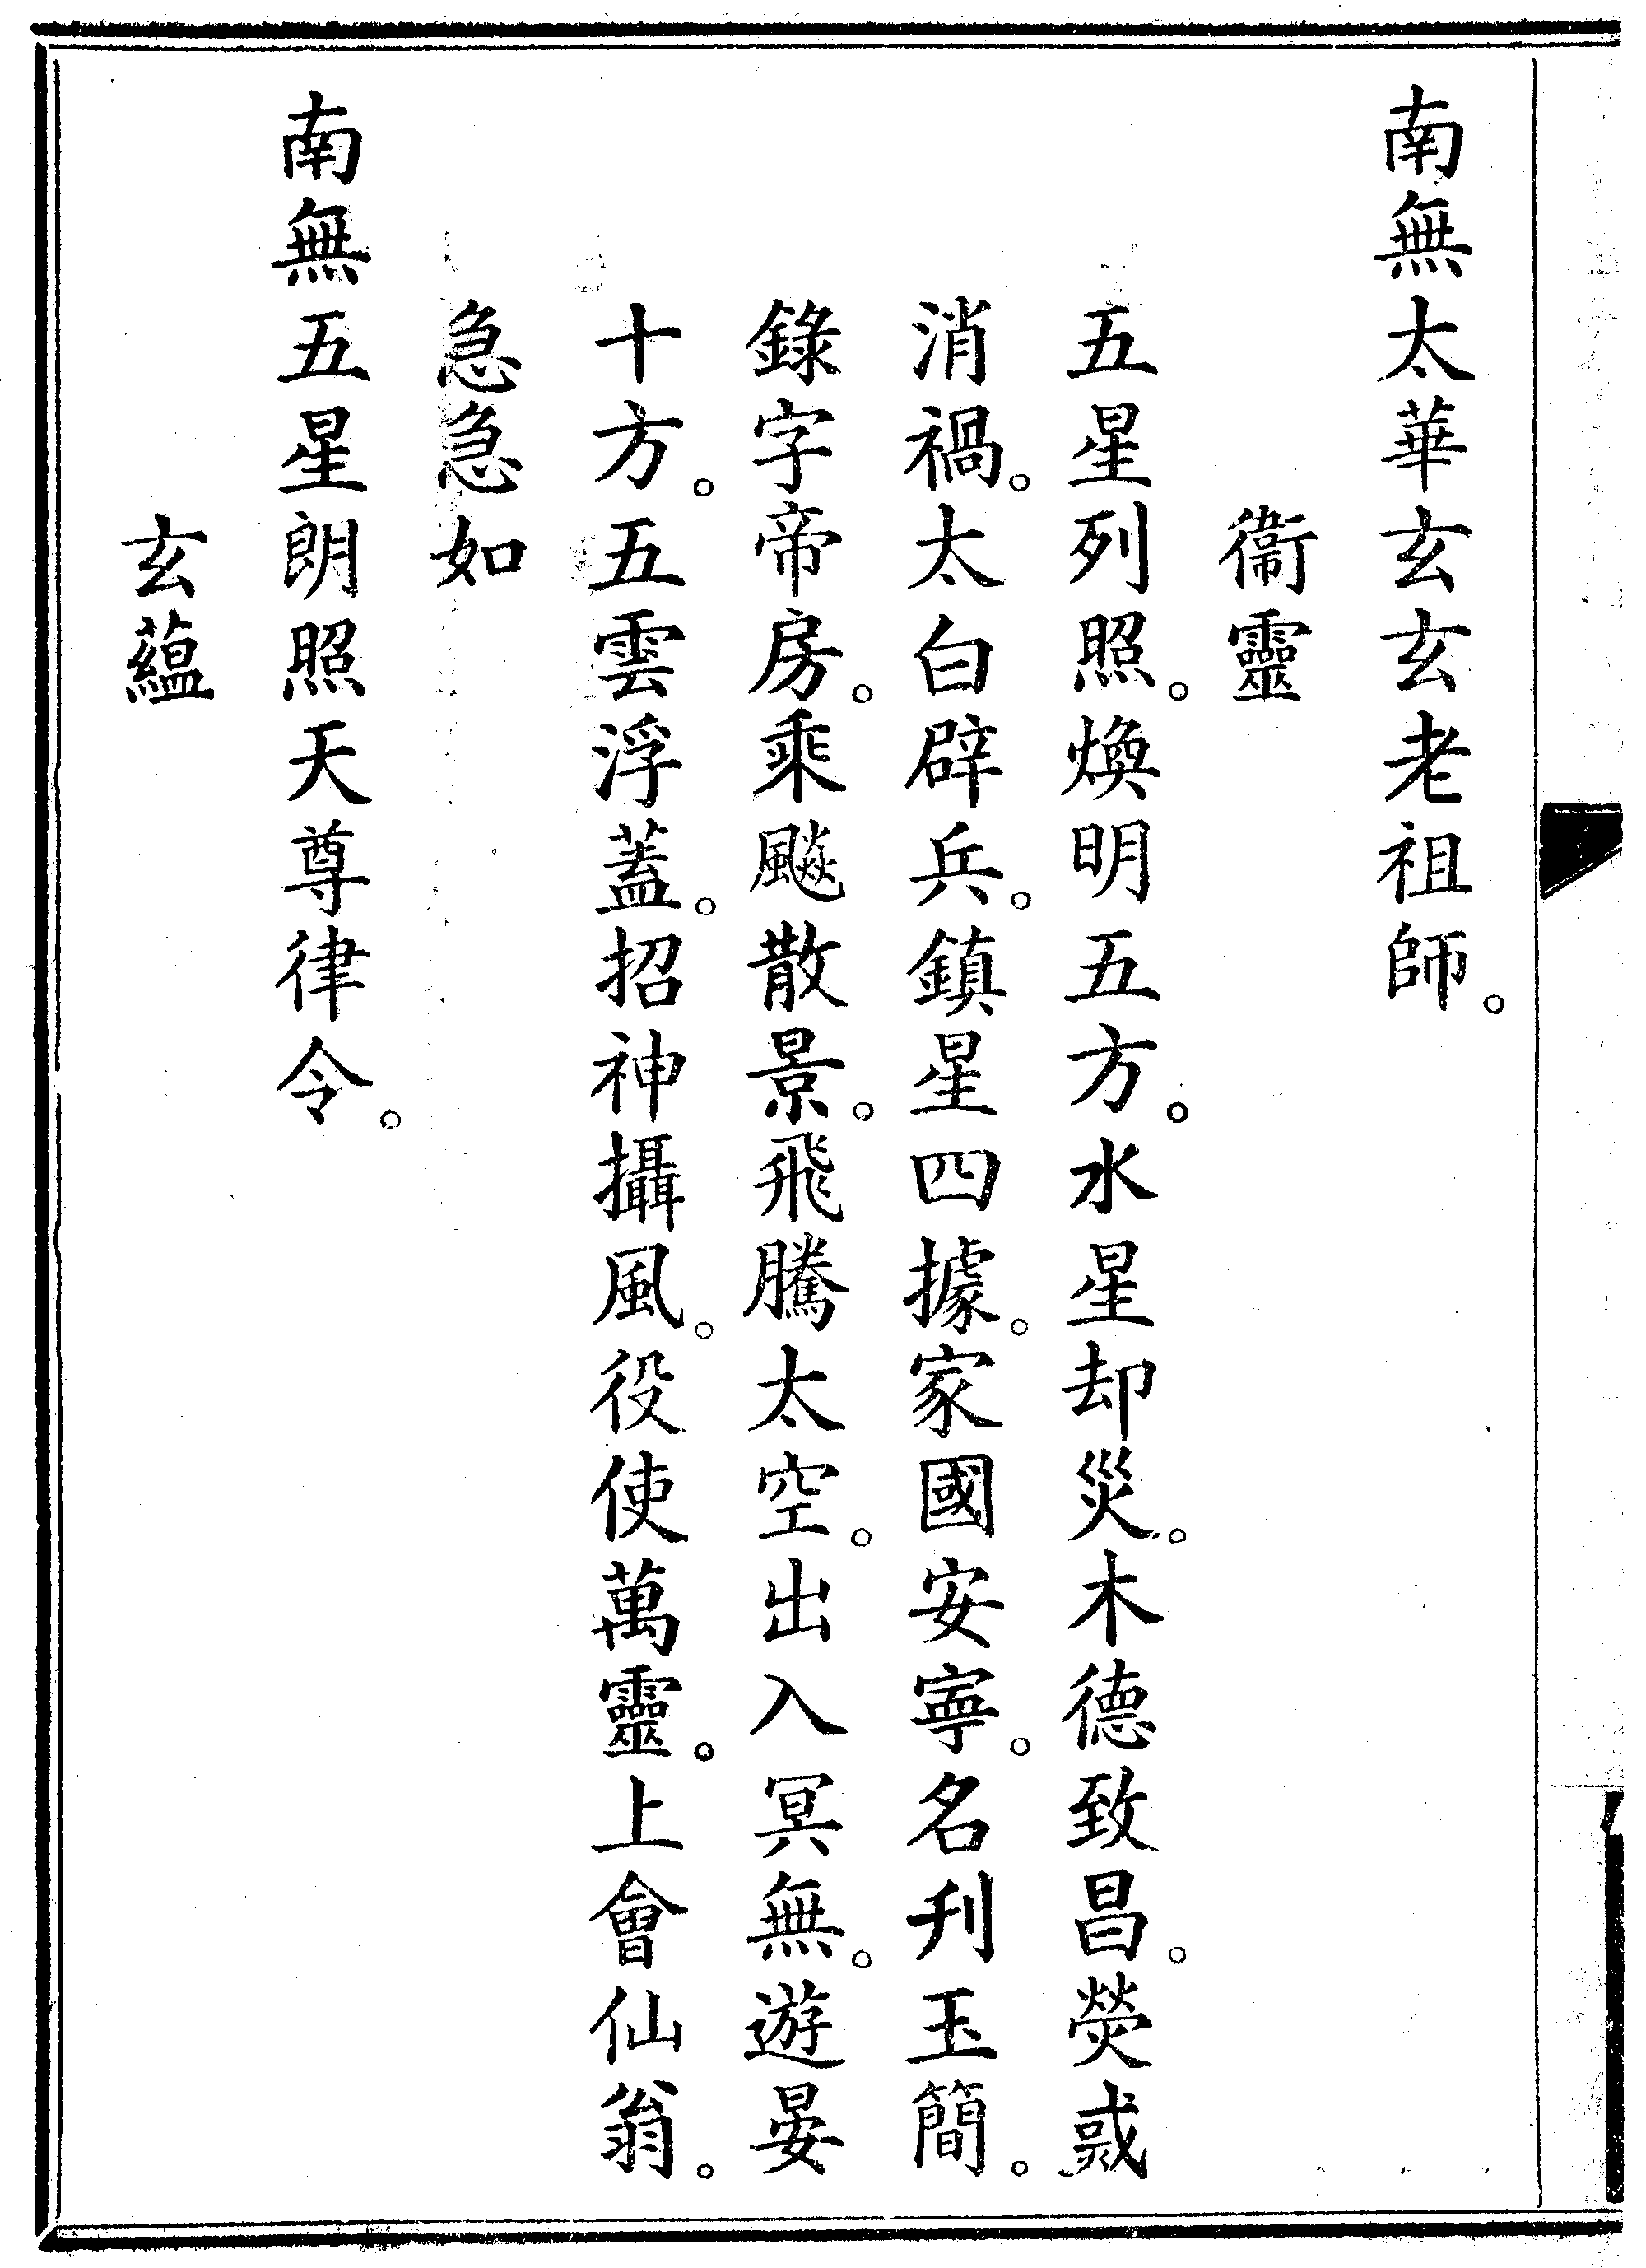 南無太華玄玄老祖師。
衞靈
五星列照。煥明五方。水星却災。木德致昌。熒惑
消禍。太白辟兵。鎮星四據。家國安寧。名刋玉簡。
錄字帝房。乘飈散景。飛騰太空。出入冥無。遊晏
十方。五雲浮蓋。招神攝風。役使萬靈。上會仙翁。
急急如
南無五星朗照天尊律令。
玄蘊